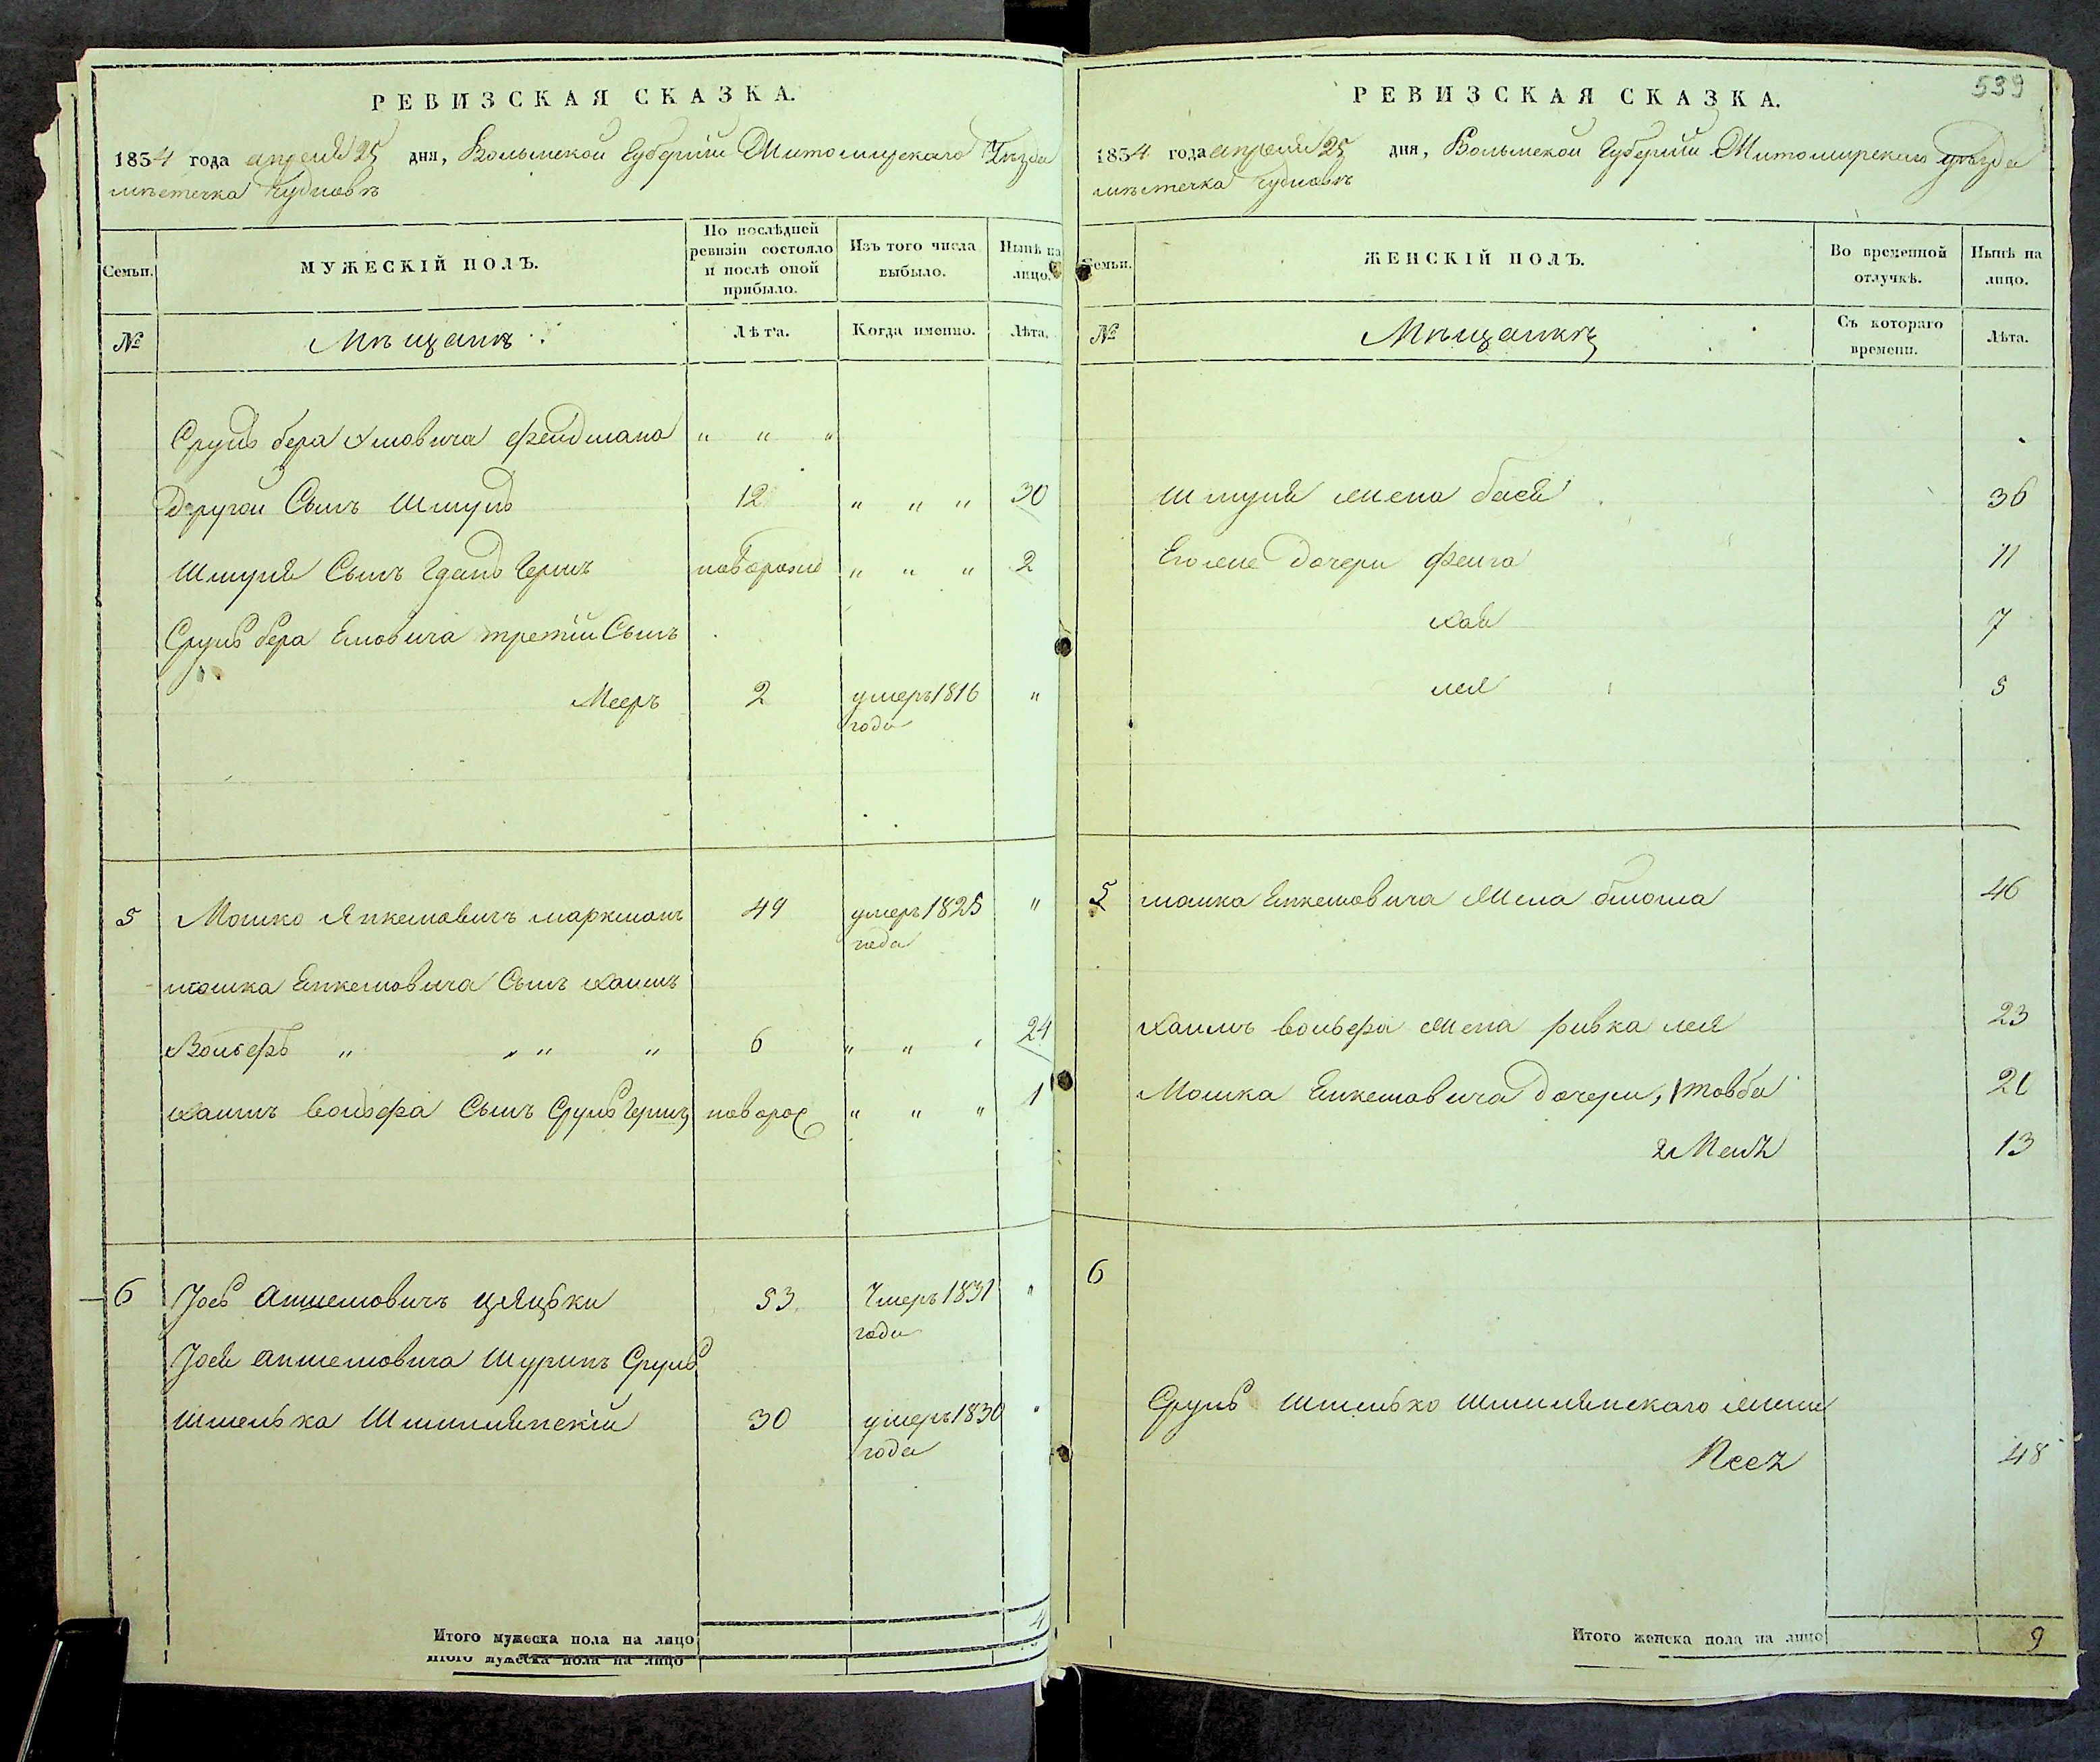 РЕВИЗСКАЯ СКАЗКА.
1834 года апреля 25 дня, Волынской Губернии Житомирскаго Уѣзда
мѣстечка Чуднова
Семьи.
МУЖЕСКІЙ ПОЛЪ.
По послѣдней ревизіи состояло и послѣ оной прибыло.
Изъ того числа выбыло.
Нынѣ на лицо.
№
Мѣщанъ
Лѣта.
Когда именно.
Лѣта.
Сруль бера феидмана " " "
Другои Сынъ Шмуль 12 " " " 30
Шмуля Сынъ новорожд " " " 2
Сруль бера третіи Сынъ
Мееръ 2 умеръ 1816 "
года
5 Мошко Янкемовичъ маркманъ 49 умеръ 1825 "
года
мошка Енкемовича Сынъ хаимъ
Вольфъ " " " " 6 " " " 24
хаимъ вольфа Сынъ Сруль Гершъ новорож " " " 1
6 Іось Аншемовичъ 53 Умеръ 1831 "
года
Іося аншемовича Шуринъ Сруль
Шмелька 30 умеръ 1830 "
года
Итого мужеска пола на лицо 4
Итого мужеска пола на лицо
539
РЕВИЗСКАЯ СКАЗКА.
1834 года апреля 25 дня, Волынской Губернии Житомирскаго уѣзда
мѣстечка Чуднова
Семьи.
ЖЕНСКІЙ ПОЛЪ.
Во временной отлучкѣ.
Нынѣ на лицо.
№
Мѣщанкъ
Съ котораго времени.
Лѣта.
Шмуля жена бася 36
Его дочери феига 11
хая 7
лея 5
5 мошка Енкемовича Жена блюма 46
хаимъ вольфа жена ривка лея 23
Мошка Енкемовича дочери, 1 товба 21
2 13
6
Сруль Шмелько жена
Песя 48
Итого женска пола на лицо 9